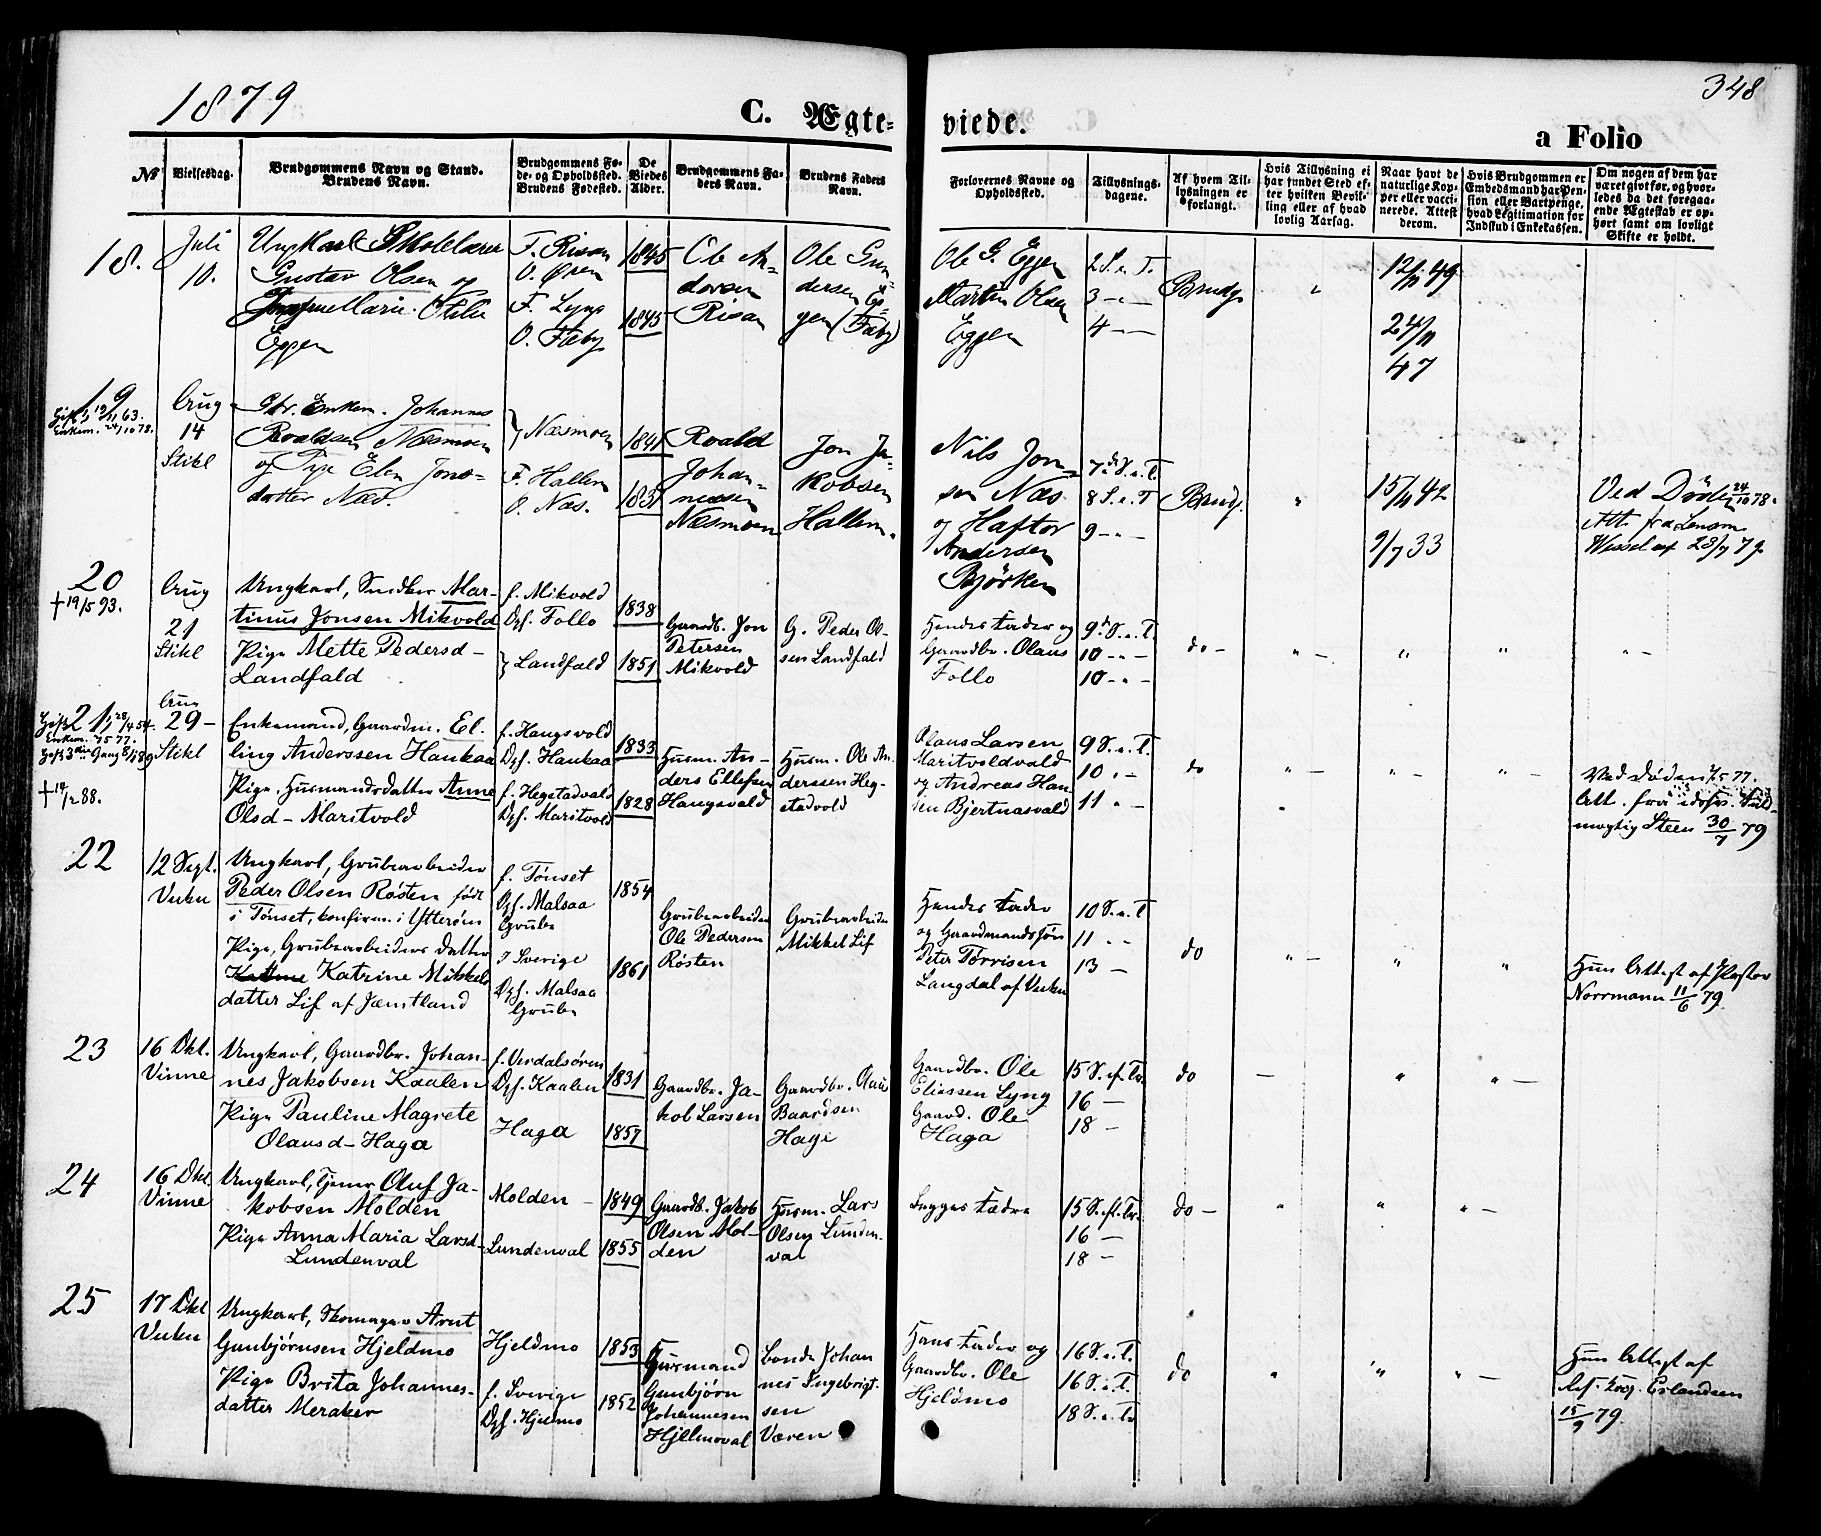 1879
348
C. Ægte-
viede.
a Folio
No
Vielsesdag.
Brudgommens Navn og Stand.
Brudens Navn.
Brudgommens Fø-
de- og Opholdssted.
Brudens Fødested.
De
Viedes
Alder.
Brudgommens Fa-
ders Navn.
Brudens Faders
Navn.
Forlovernes Navne og
Opholdssted.
Tillysnings-
dagene.
Af hvem Til-
lysningen er
forlangt.
Hvis Tillysning ei
har fundet Sted ef-
ter hvilken Bevil-
ling eller af hvad
lovlig Aarsag.
Naar havt de
naturlige Kop-
per eller vacci-
nerede. Attest
derom.
Hvis Brudgommen er
Embedsmand har Pen-
sion eller Vartpenge,
hvad Legitimation for
Indskud i Enkekassen.
Om nogen af dem har
været givt før, og hvor-
ledes da det foregaa-
ende Ægteskab er op-
hørt samt om lovligt
Skifte er holdt.
18.
Juli
10.
Ungkarl Skolelærer
Gustav Olsen og
Marie Otilie
Eggen
F. Risan
O. Øren
F. Lyng
O. Fæby
1845
1845
Ole An-
dersen
Risan
Ole Gun-
dersen Eg-
gen (Fæby)
Ole G. Eggen
Martin Olsen
Eggen
2 S. e. T.
3 - " -
4 - -
Brudg.
"
12/11 49
24/11
47
19
Gift 63.
Enkem. 24/10 78.
Aug
14
Stikl
Gbr. Enkem. Johannes
Roaldsen Næsmoen
og Pige Elen Jons-
datter Næs.
} Næsmoen
F. Hallem
O. Næs.
1841
1831
Roald
Johan-
nessen
Næsmoen
Jon Ja-
kobsen
Hallem.
Nils Jon-
sen Næs
og Haftor
Andersen
Bjørken
7de S. e. T.
8 S. e. T
9 - " -
Brudg.
"
15/11 42
9/7 33
Ved Døden 24/10 78.
Att. fra Lensm.
Wessel af 28/7 79
20
† 19/5 93.
Aug
21
Stikl
Ungkarl, Snedker Mar-
tinus Jonsen Mikvold
Pige Mette Pedersd -
Landfald
f. Mikvold
Opf. Follo
} Landfald
1838
1851
Gaardb. Jon
Petersen
Mikvold
G. Peder Ol-
sen Landfald
Hendes Fader og
Gaardbr. Olaus
Follo
9de S. e. T.
10 - " -
10 - " -
do -
" -
"
"
" -
21
Gift 28/4 54
Enkem. 7/5 77.
Gift 3die Gang 89
† 88.
Aug
29 -
Stikl
Enkemand, Gaardm. El-
ling Anderssen Haukaa
Pige, Husmandsdatter Anne
Olsd - Maritvold
f. Haugsvold
Opf. Haukaa
f. Hegstadvald
Opf. Maritvold
1833
1828
Husm. An-
ders Ellefsen
Haugsvald
Husm. Ole An-
derssen Heg-
stadvold
Olaus Larsen
Maritvoldvald
og Andreas Han-
sen Bjertnasvald
9 S. e. T.
10 " -
11 " -
do
" -
"
" -
" -
Ved Døden 7/5 77.
Att. fra
mægtig Steen 30/7 79
22
12 Sept.
Vuku
Ungkarl, Grubearbeider
Peder Olsen Røsten født
i Tønset, konfirm. i Ytterøen
Pige, Grubearbeiders datter
Katrine Mikkels
datter Lif af Jæmtland
f. Tønset
Opf. Malsaa
Grube
I Sverige
Opf. Malsaa
Grube
1854
1861
Grubearbeider
Ole Pedersen
Røsten
Grubearbeider
Mikkel Lif
Hendes Fader
og Gaardmandssøn
Peter Torrisen
Langdal af Vuku
10 S. e. T
11 " "
13 -
do
" -
"
"
Hun Attest af Pastor
Norrmann 11/6 79.
23
16 Okt.
Vinne
Ungkarl, Gaardbr. Johan-
nes Jakobsen Kaalen
Pige Pauline Magrete
Olausd - Haga
f. Verdalsøren
Opf. Kaalen
Haga
1831
1857
Gaardbr. Ja-
kob Larsen
Gaardbr. Olaus
Baardsen
Hage
Gaardbr. Ole
Eliassen Lyng
Gaard. Ole
Haga
15 S. ef. Tr.
16 -
18 -
do
-
"
" -
24
16 Okt
Vinne
Ungkarl, Tjener Oluf Ja-
kobsen Molden
Pige Anna Maria Larsd-
Lundenval
Molden -
Lundenval
1849
1855
Gaardb. Jakob
Olsen Mol-
den
Husm. Lars
Olsen Lunden-
val
Begges Fædre
15 S. ef. Tr.
16 -
18 -
do -
"
"
" -
25
17 Okt
Vuku
Ungkarl, Skomager Arnt
Gunbjørnsen Hjeldmo
Pige Brita Johannes-
datter Meraker
Hjeldmo
f. Sverige
Opf. Hjelmo
1853
1852
Husmand
Gunbjørn
Johannesen
Hjelmoval
Bonde Johan
nes Ingebrigt-
sen
Væren
Hans Fader og
Gaardbr. Ole
Hjeldmo
16 S. e. T.
16 S. e. T.
18 S. e. Tr
do
"
"
" -
Hun Attest af
Res. Kap. Erlandsen
15/9 79